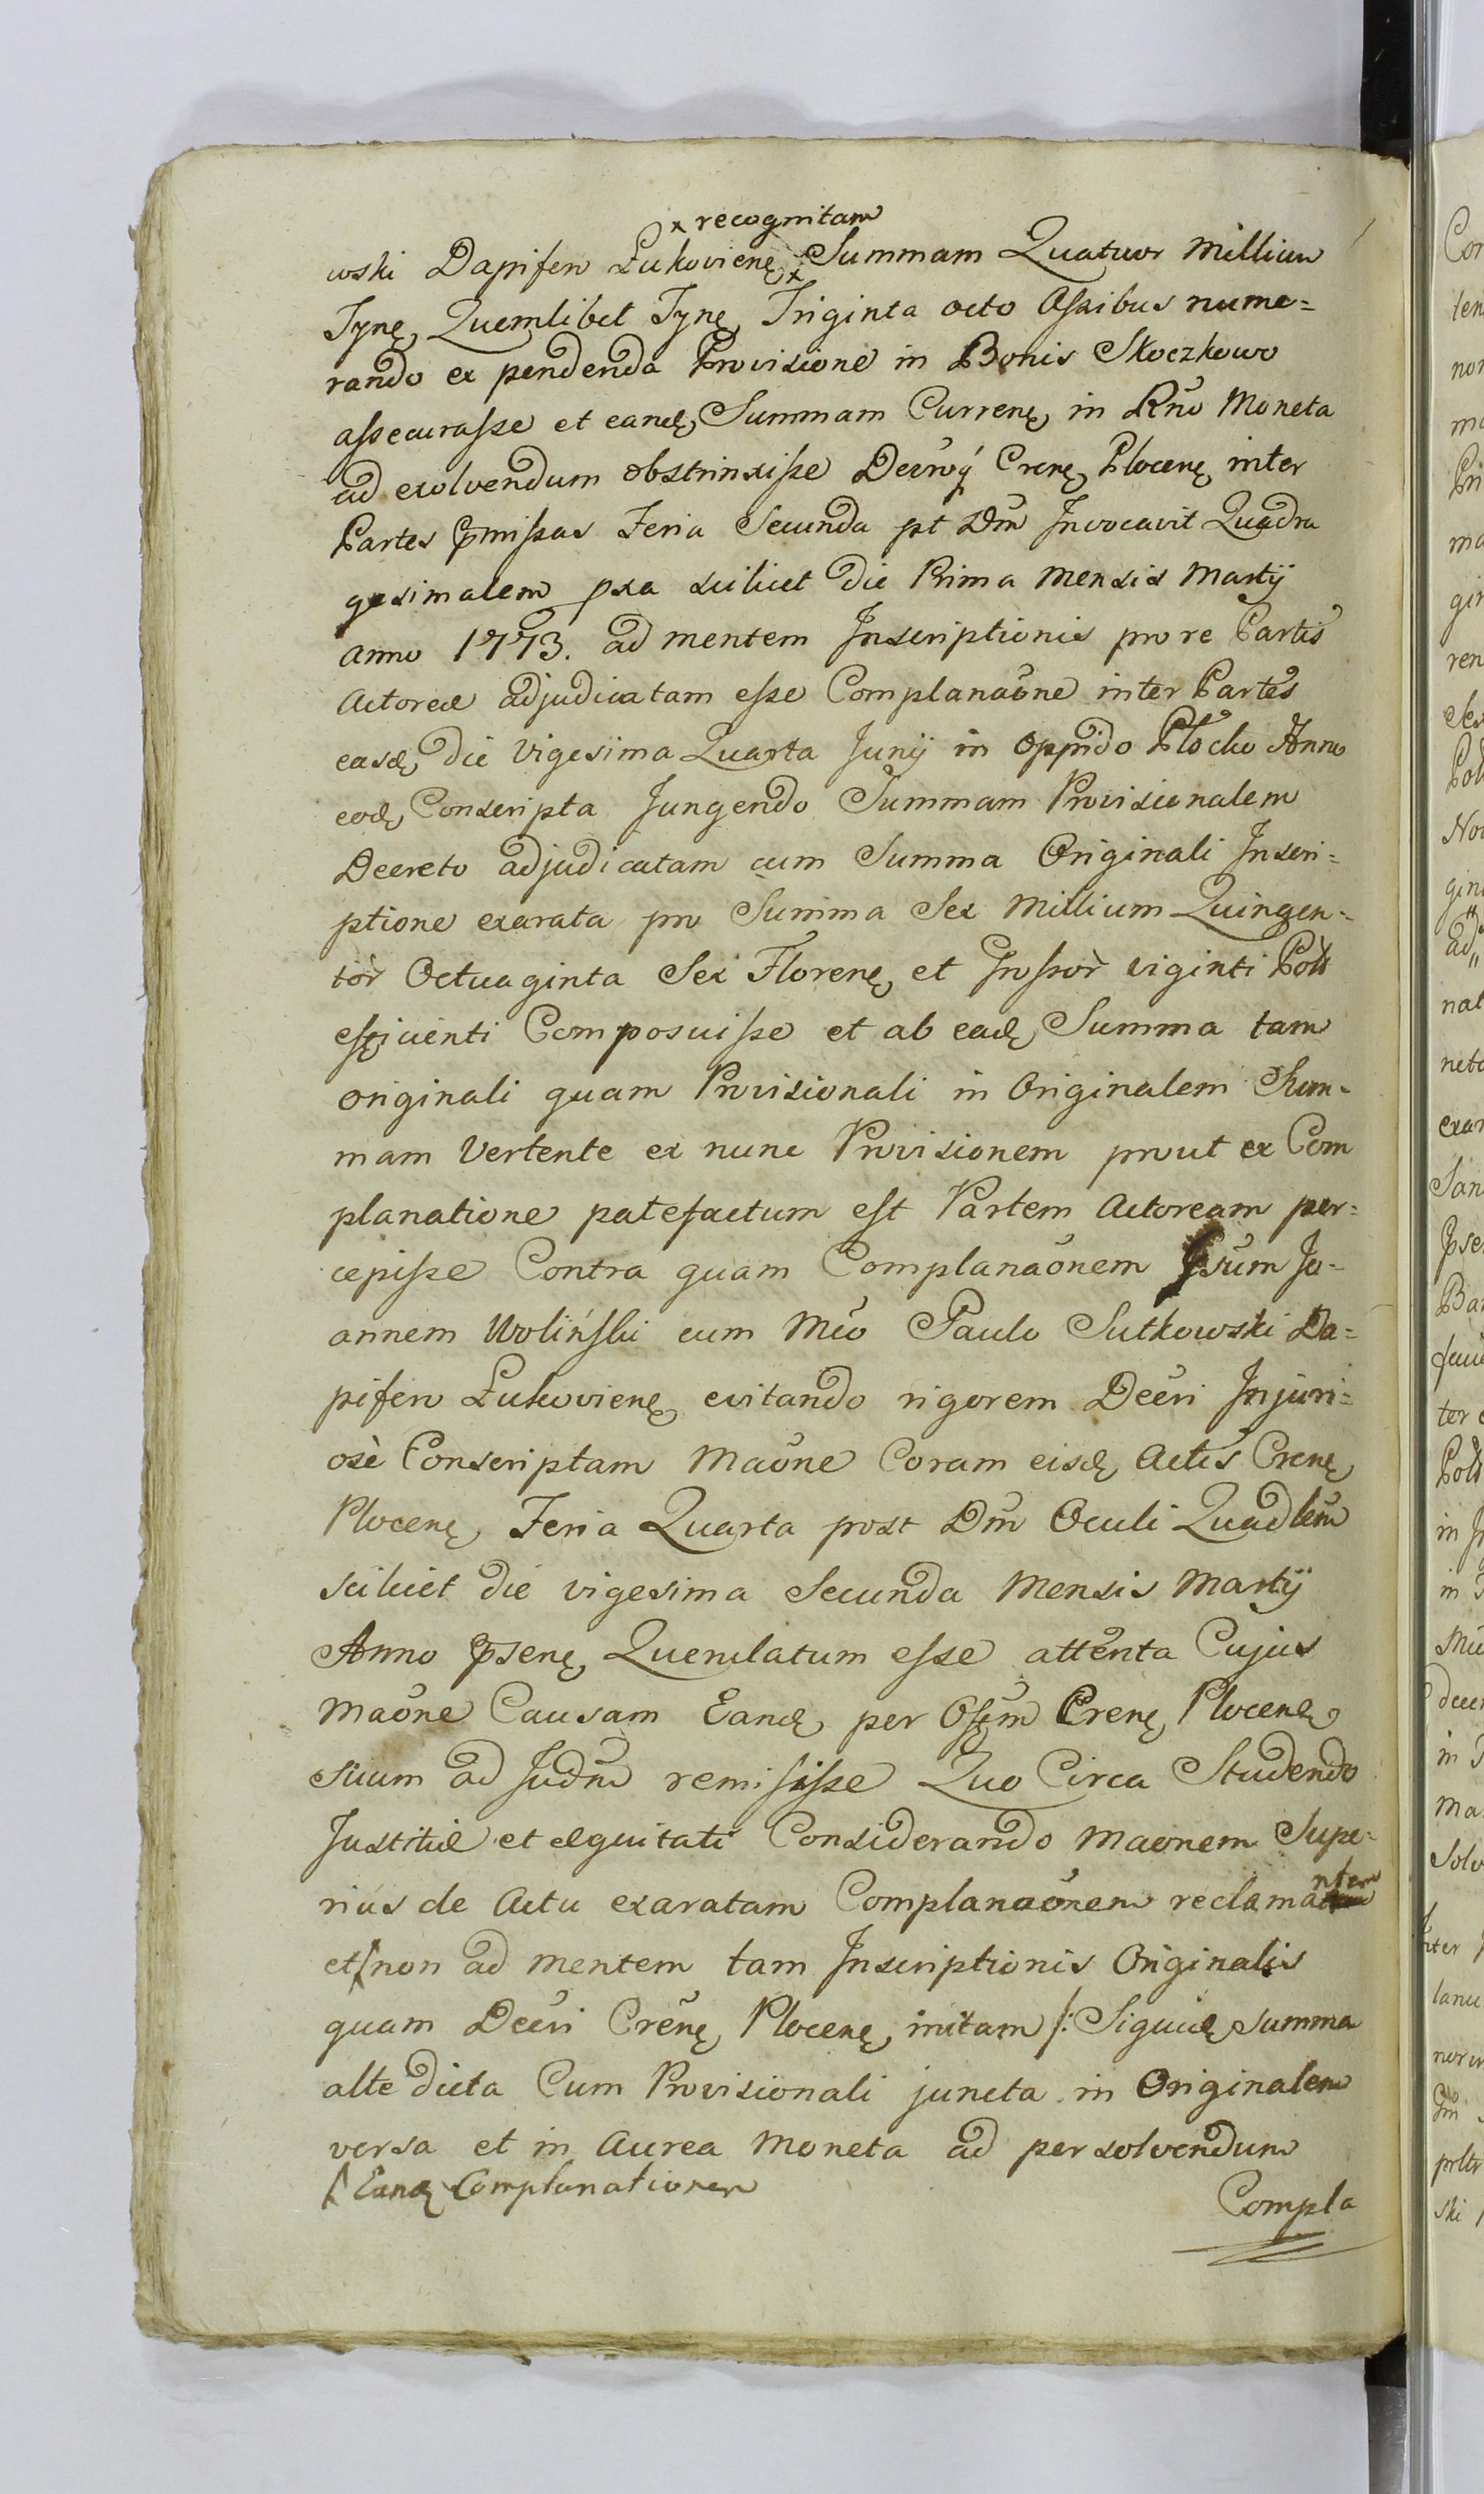 x recognitam
wski Dapifero Łukoviens, x Summam Quatuor Millium
Tynf, Quemlibet Tynf, Triginta octo Assibus nume=
rando ex pendenda Provisione in Bonis Skoczkowo
assecurasse et eand, Summam Currenf, in Rno Moneta
ad exolvendum obstrinxisse Crens, Plocens, inter
Partes pmissas Feria Secunda pt Dm Invocavit Quadra
gesimalem pxa scilicet die Prima Mensis Martij
anno 1773. ad mentem Inscriptionis pro re Partis
Actoreæ adjudicatam esse Complanaõne inter Partes
easd, die Vigesima Quarta Junij in oppido Płocko Anno
eod, Conscripta Jungendo Summam Provisionalem
Decreto adjudicatam cum Summa Originali Inscri=
ptione exarata pro Summa Sex Millium Quingen=
tor Octuaginta Sex Florens, et Grossor viginti Poll
efficienti Composuisse et ab ead, Summa tam
originali quam Provisionali in Originalem Sum=
mam Vertente ex nunc Provisionem prout ex Com
planatione patefactum est Partem Actoream per=
cepisse Contra quam Complanaõnem Gsum Jo=
annem Woliński cum Mco Paulo Sutkowski Da=
pifero Łukoviens, evitando rigorem Decri Injuri=
osè Conscriptam Maõne Coram eisd, Actis Crens,
Plocens, Feria Quarta post Dm Oculi Quadlem
scilicet die vigesima Secunda Mensis Martij
Anno psens, Querulatum esse attenta Cujus
Maõne Causam Eand, per Offm Crens, Plocens,
suum ad Judm remisisse Quo Circa Studendo
Justitiæ et æquitati Considerando Maonem Supe=
rius de Actu exaratam Complanaõnem reclamantem
et non ad mentem tam Inscriptionis Originalis
quam Decri Crens, Plocens, initam /: Siquid, summa
alte dicta Cum Provisionali juncta in Originalem
versa et in Aurea Moneta ad persolvendum
Eand, Complanationem
Compla